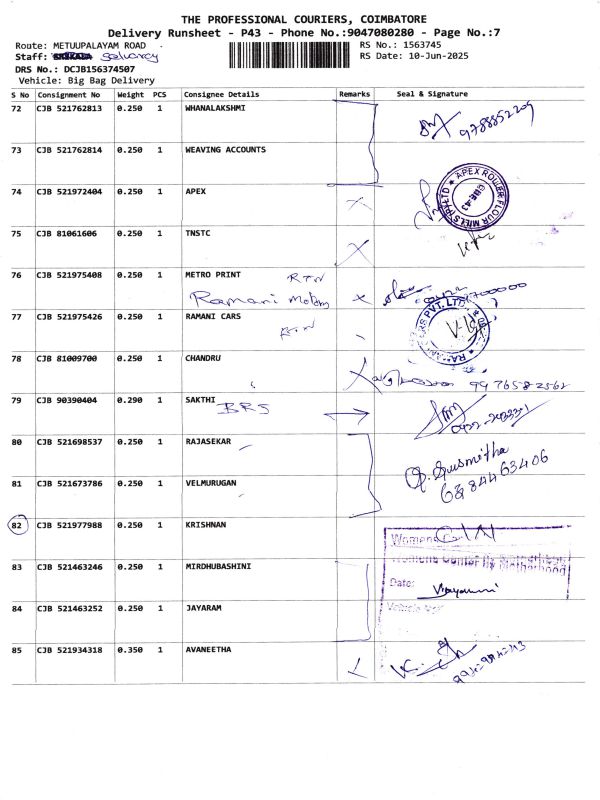 THE PROFESSIONAL COURIERS, COIMBATORE
Delivery Runsheet - P43 - Phone No.:9047080280 - Page No.:7
Route: METUUPALAYAM ROAD RS No.: 1563745
Staff: RS Date: 10-Jun-2025
DRS No.: DCJB156374507
Vehicle: Big Bag Delivery
S No Consignment No Weight PCS Consignee Details Remarks Seal & Signature
72 CJB 521762813 0.250 1 WHANALAKSHMI
73 CJB 521762814 0.250 1 WEAVING ACCOUNTS
74 CJB 521972404 0.250 1 APEX
APEX ROLLER FLOUR MILLS (P) LTD
CBE-43
75 CJB 81061606 0.250 1 TNSTC
76 CJB 521975408 0.250 1 METRO PRINT RTN
Ramani
77 CJB 521975426 0.250 1 RAMANI CARS
78 CJB 81009700 0.250 1 CHANDRU
9976582562
79 CJB 90390404 0.290 1 SAKTHI
BRS
80 CJB 521698537 0.250 1 RAJASEKAR
Susmitha
81 CJB 521673786 0.250 1 VELMURUGAN
6384463406
82 CJB 521977988 0.250 1 KRISHNAN
Womens Center by Motherhood
83 CJB 521463246 0.250 1 MIRDHUBASHINI
Date:
84 CJB 521463252 0.250 1 JAYARAM
85 CJB 521934318 0.350 1 AVANEETHA